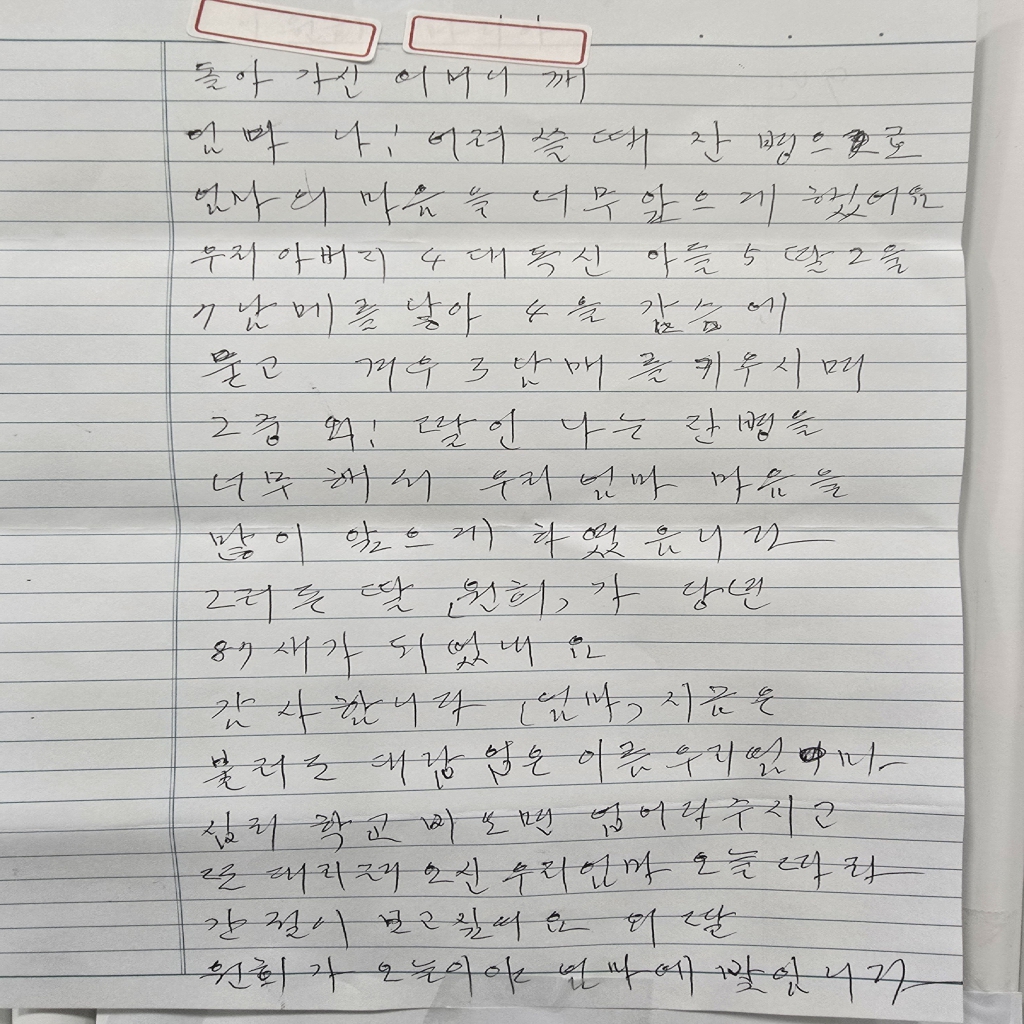 돌아 가신 어머니 께
엄마 나! 어려 쓸 때 잔 병으로
엄마 의 마음을 너무 앞으게 했어요
우리 아버지 4대 독신 아들 5 딸 2을
7 남메를 낳아 4을 감슴에
묻고 겨우 3남매를 키우시며
그중 외! 딸인 나는 잔병을
너무 해서 우리 엄마 마음을
많이 앞으게 하였읍니다
그러든 딸 "원희" 가 당년
87새가 되었내요
감사합니다 "엄마" 지금은
불러도 대답 없은 이름 우리 엄마
십리 학교 비 오면 업어다 주시고
또 대리려 오신 우리 엄마 오늘 따라
간절이 보고 싶어요 외 딸
원희가 오늘이야 엄마에 말입니다